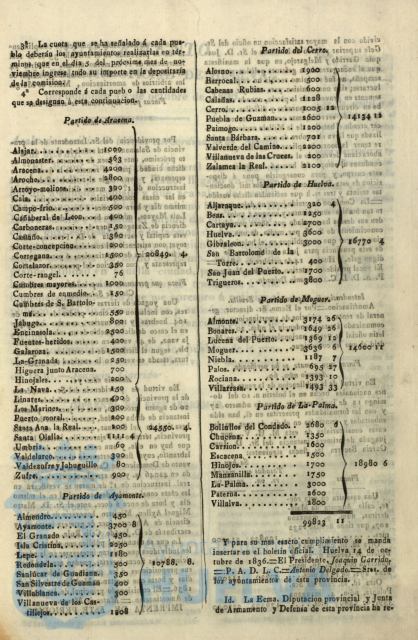 3ª La cuota que se ha señalado á cada pue-
blo deberán los ayuntamientos realizarlas en tér-
minos que en el dia 5 del próximo mes de no-
viembre ingrese todo su importe en la depositaría
de la comision.
4ª Corresponde á cada pueblo las cantidades
que se designan á esta continuacion.
Partido de Aracena.
Alajar. 1000
Almonaster. 563
Aracena. 4200
Aroche. 2800
Arroyo-molinos. 320
Cala. 400
Campo-frio. 500
Cañaberal de Leon. 400
Carboneras. 150
Castaño. 360
Corte-concepcion. 200
Cortegana. 1500
Cortelazor. 350
Corte-rangel. 76
Cumbres mayores. 1000
Cumbres de enmedio. 150
Cumbres de S. Bartolo-
mé. 550
Jabugo. 800
Encinasola. 3500
Fuentes-heridos. 400
Galaroza. 1500
La-Granada. 250
Higuera junto Aracena. 700
Hinojales. 200
20849. 4.
La Nava. 150
Linares. 400
Los Marines. 300
Puerto moral. 100
Santa Ana la Real. 200
Santa Olalla. 1111 4
Umbria. 60
Valdelarco. 300
Valdezufre y Jabuguillo 80
Zufre. 900
24550. 4.
Partido de Ayamonte.
Almendro. 450
Ayamonte. 3700 8
El Granado. 450
Isla Cristina. 2250
Lepe. 1180
Redondela. 500
Sanlúcar de Guadiana. 350
San Silvestre de Guzman
Villablanca. 400
Villanueva de los Cas-
tillejos. 1208
10788. 8.
Partido del Cerro.
Alosno. 1900
Berrocal. 500
Cabezas Rubias. 600
Calañas. 1128
Cerro. 1005 12
Puebla de Guzman. 2600
Paimogo. 1200
Santa Bárbara. 701
Valverde del Camino. 2200
Villanueva de las Cruces. 200
Zalamea la Real. 2100
14134 12
Partido de Huelva.
Aljaraque. 320 4
Beas. 1250
Cartaya. 2700
Huelva. 3600
Gibraleon. 3000
San Bartolomé de la
Torre. 400
San Juan del Puerto. 1700
Trigueros. 3800
16770 4
Partido de Moguer.
Almonte. 3174 26
Bonares. 1649 26
Lucena del Puerto. 1369
Moguer. 3636 6
Niebla. 1187 7
Palos. 695 27
Rociana. 1393 10
Villarrasa. 1493 33
14600 11
Partido de La-Palma.
Bollullos del Condado. 2680 6
Chucena. 1350
Carrion. 1600
Escacena. 1500
Hinojos. 1700
Manzanilla. 1750
La-Palma. 3000
Paterna. 2600
Villalva. 2800
18980 6
99823 11
Y para su mas exacto cumplimiento se manda
insertar en el boletin oficial. Huelva 14 de oc-
tubre de 1836.=El Presidente, Joaquin Garrido,
= P. A. D. L. C.=Antonio Delgado.=Sres. de
los ayuntamientos de esta provincia.
Id. La Ecma. Diputacion provincial y Junta
de Armamento y Defensa de esta provincia ha re-